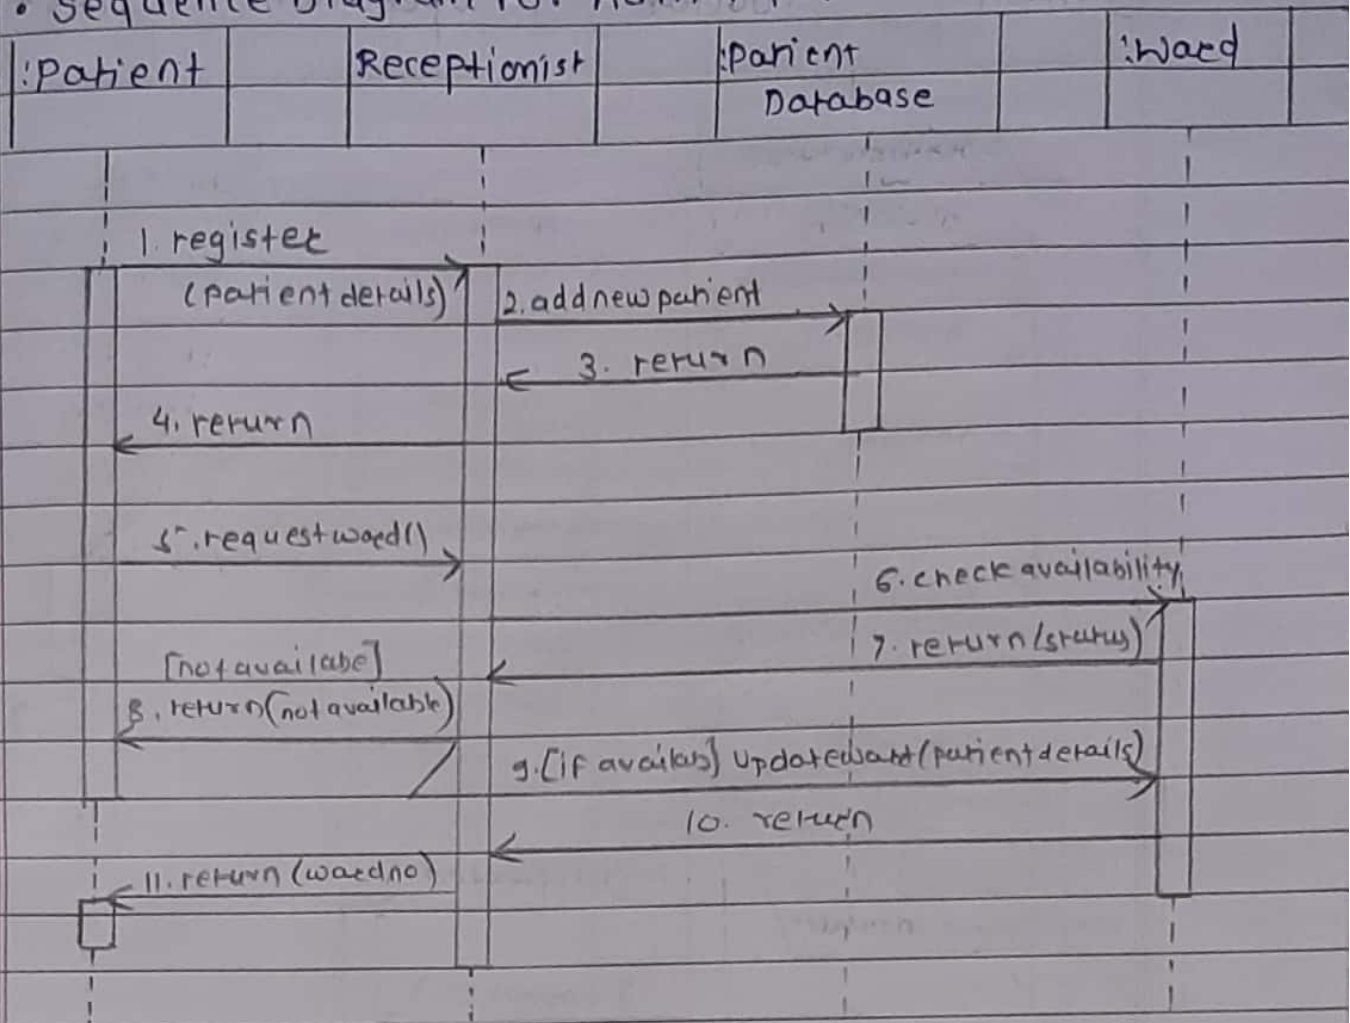 • Sequence Diagram for
:Patient
Receptionist
:Patient
Database
:Ward
1. register
(patient details)
2. add new patient
3. return
4. return
5. request ward()
6. check availability
7. return (status)
[not availabe]
8. return (not available)
9. [if availab] Updateward (patient details)
10. return
11. return (ward no)